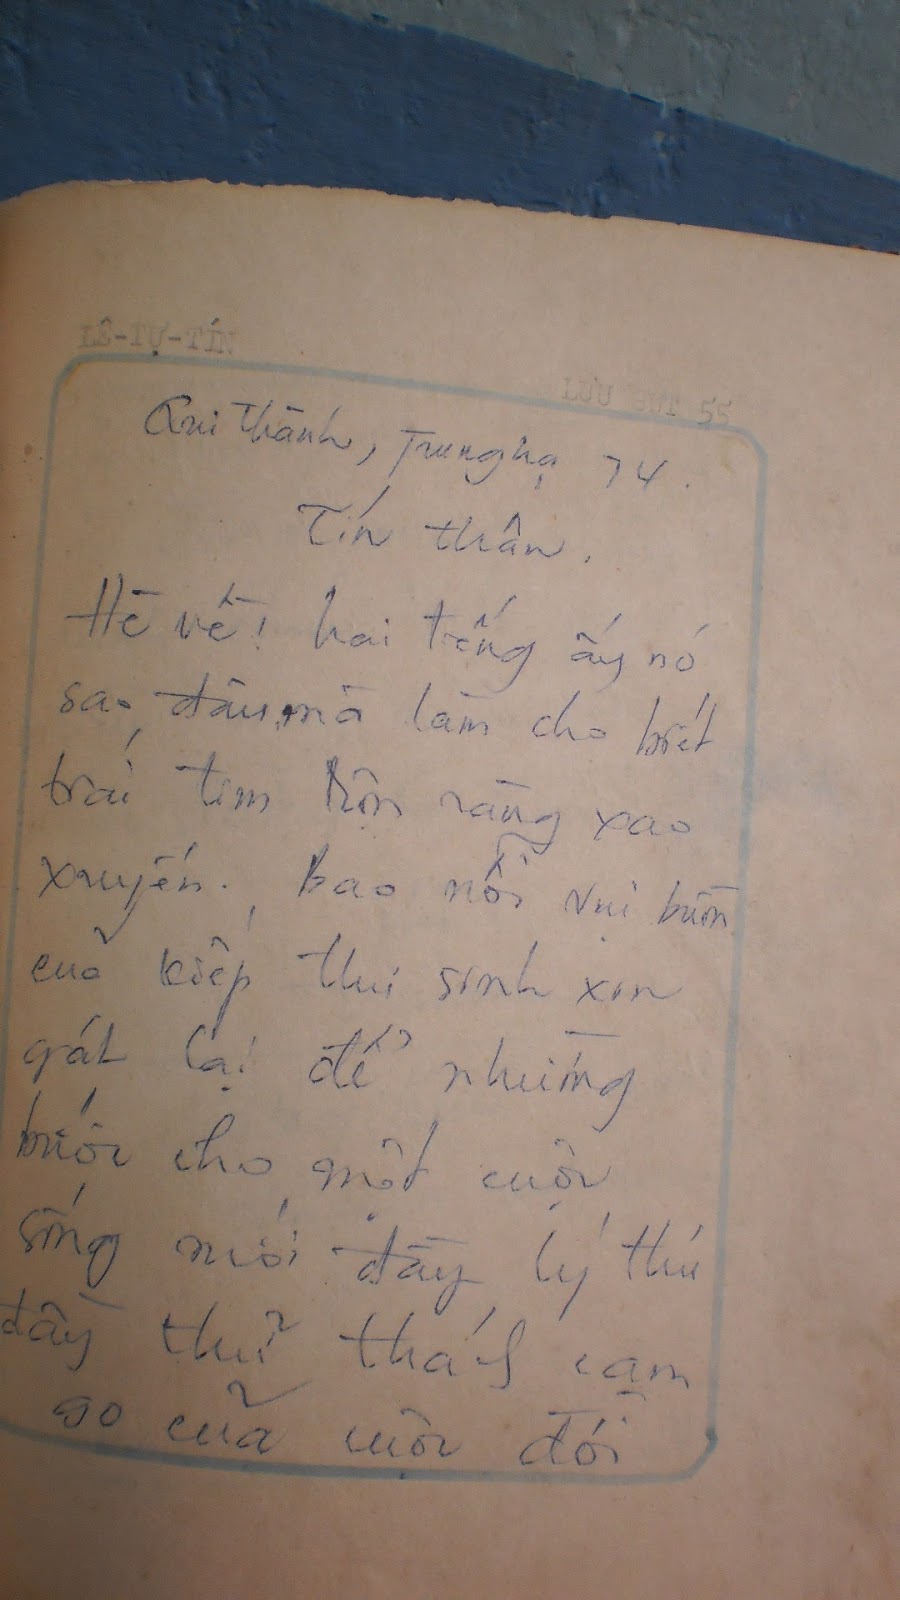 LÊ-TỰ-TÍN
LƯU BÚT 55
Qui Thành, Trung hạ 74.
Tín thân.
Hè về! hai tiếng ấy nó
sao đâu mà làm cho biết
trái tim rộn ràng xao
xuyến. Bao nỗi vui buồn
cuả kiếp thư sinh xin
gát lại để nhường
bước cho một cuộc
sống mới đầy lý thú
đầy thử thách cam
go cũa cuộc đời